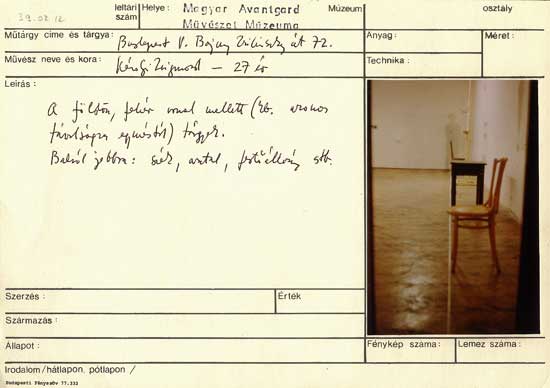 39.02.12
leltári szám
Helye: Magyar Avantgard Művészet Múzeuma Múzeum
osztály
Műtárgy címe és tárgya: Budapest V. Bajcsy Zsilinszky út 72.
Anyag:
Méret:
Művész neve és kora: Károlyi Zsigmond – 27 év
Technika:
Leírás:
A földön, fehér vonal mellett (kb. azonos
távolságra egymástól) tárgyak.
Balról jobbra: szék, asztal, festőállvány stb.
Szerzés:
Érték
Származás:
Állapot:
Fénykép száma:
Lemez száma:
Irodalom /hátlapon, pótlapon /
Budapesti Fényszöv 77.332